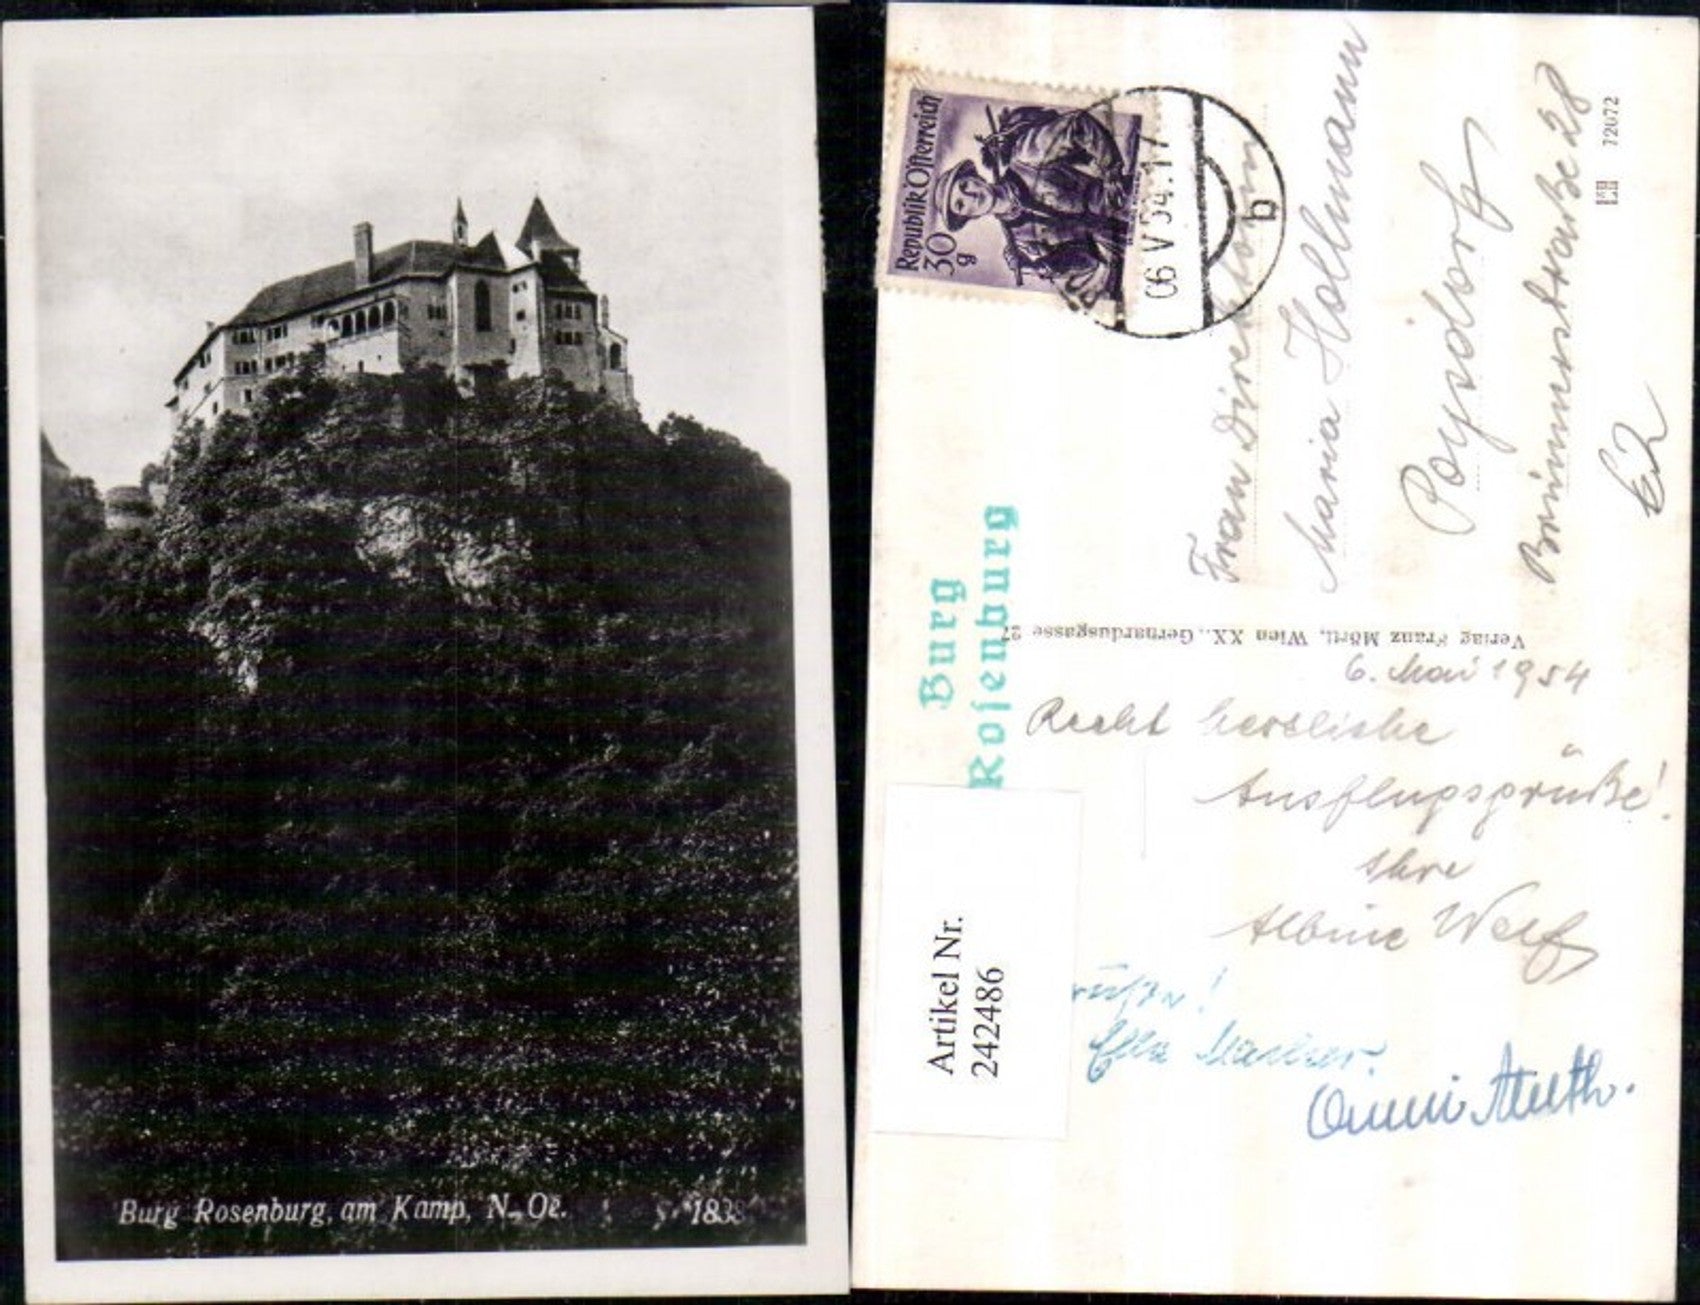 Burg Rosenburg, am Kamp, N. Oe.
Republik Österreich
30
g
06 V 54.17
b
Frau Direktorin
Maria Hollmann
Poysdorf
Brünnerstraße 28
72072
Burg
Rosenburg
Verlag Franz Mörtl, Wien XX., Gerhardusgasse 27
6. Mai 1954
Recht herzliche
Ausflugsgrüße!
Ihre
Albine Wolf
Ella
Artikel Nr.
242486